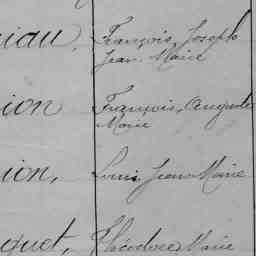 iau, François, Joseph
Jean Marie
ion François, Auguste
Marie
ion, Louis Jean Marie
quet, Théodore Marie